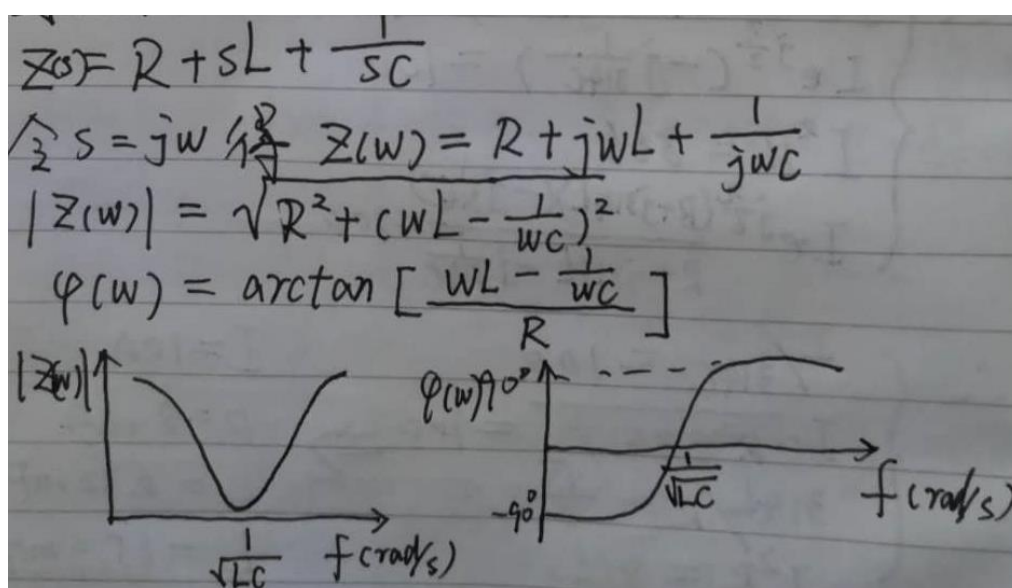 Z(s)= R + sL + 1/sC
令 s = jw 得 Z(w) = R + jwL + 1/jwC
|Z(w)| = √(R² + (wL - 1/wC)²)
φ(w) = arctan [ (wL - 1/wC)/R ]
|Z(w)|
1/√LC
f(rad/s)
φ(w)
90°
-90°
1/√LC
f(rad/s)